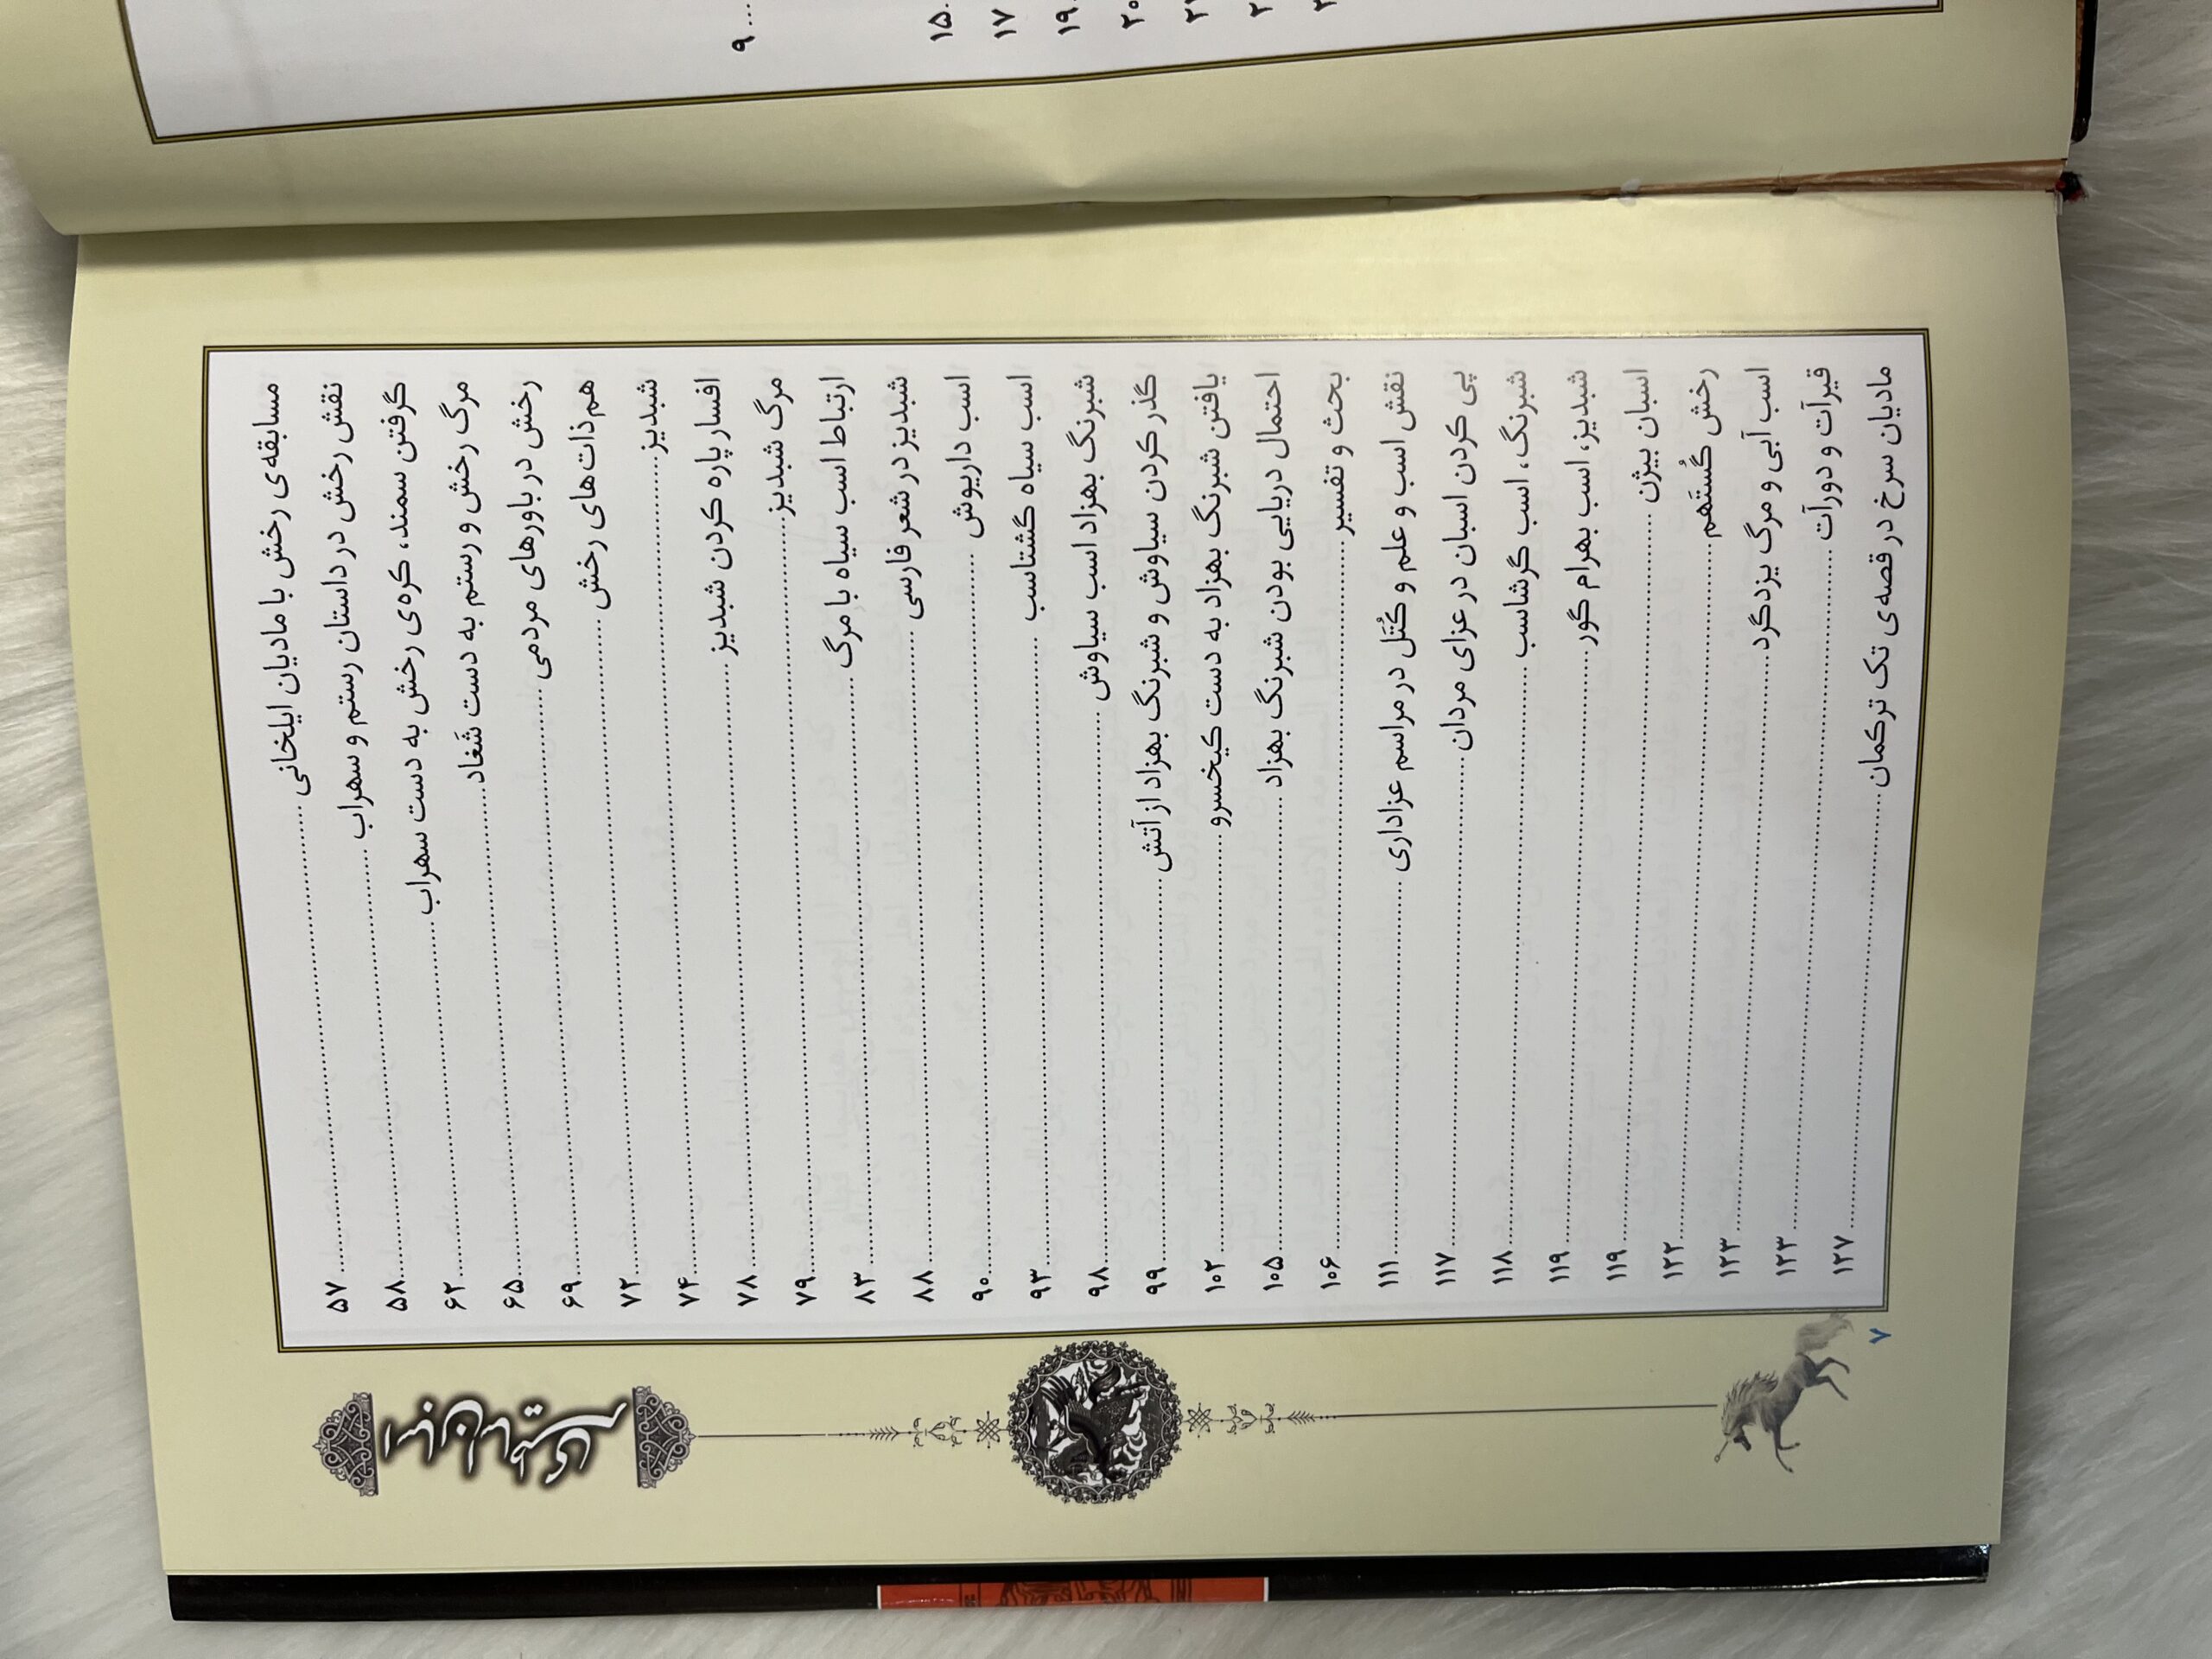 مسابقه‌ی رخش با مادیان ایلخانی ........ ۵۷
نقش رخش در داستان رستم و سهراب ........ ۵۸
گرفتن سمند، کره‌ی رخش به دست سهراب ........ ۶۲
مرگ رخش و رستم به دست شَغاد ........ ۶۵
رخش در باورهای مردمی ........ ۶۹
هم‌ذات‌های رخش ........ ۷۲
شبدیز ........ ۷۴
افسار پاره کردن شبدیز ........ ۷۸
مرگ شبدیز ........ ۷۹
ارتباط اسب سیاه با مرگ ........ ۸۳
شبدیز در شعر فارسی ........ ۸۸
اسب داریوش ........ ۹۰
اسب سیاه گشتاسب ........ ۹۳
شبرنگ بهزاد اسب سیاوش ........ ۹۸
گذر کردن سیاوش و شبرنگ بهزاد از آتش ........ ۹۹
یافتن شبرنگ بهزاد به دست کیخسرو ........ ۱۰۲
احتمال دریایی بودن شبرنگ بهزاد ........ ۱۰۵
بحث و تفسیر ........ ۱۰۶
نقش اسب و علم و کُتَل در مراسم عزاداری ........ ۱۱۱
پی کردن اسبان در عزای مردان ........ ۱۱۷
شبرنگ، اسب گرشاسب ........ ۱۱۸
شبدیز، اسب بهرام گور ........ ۱۱۹
اسبان بیژن ........ ۱۱۹
رخش گُستَهم ........ ۱۲۲
اسب آبی و مرگ یزدگرد ........ ۱۲۳
قیرآت و دورآت ........ ۱۲۳
مادیان سرخ در قصه‌ی تک ترکمان ........ ۱۲۷
۷
۹
۱۵
۱۷
۱۹
۲۰